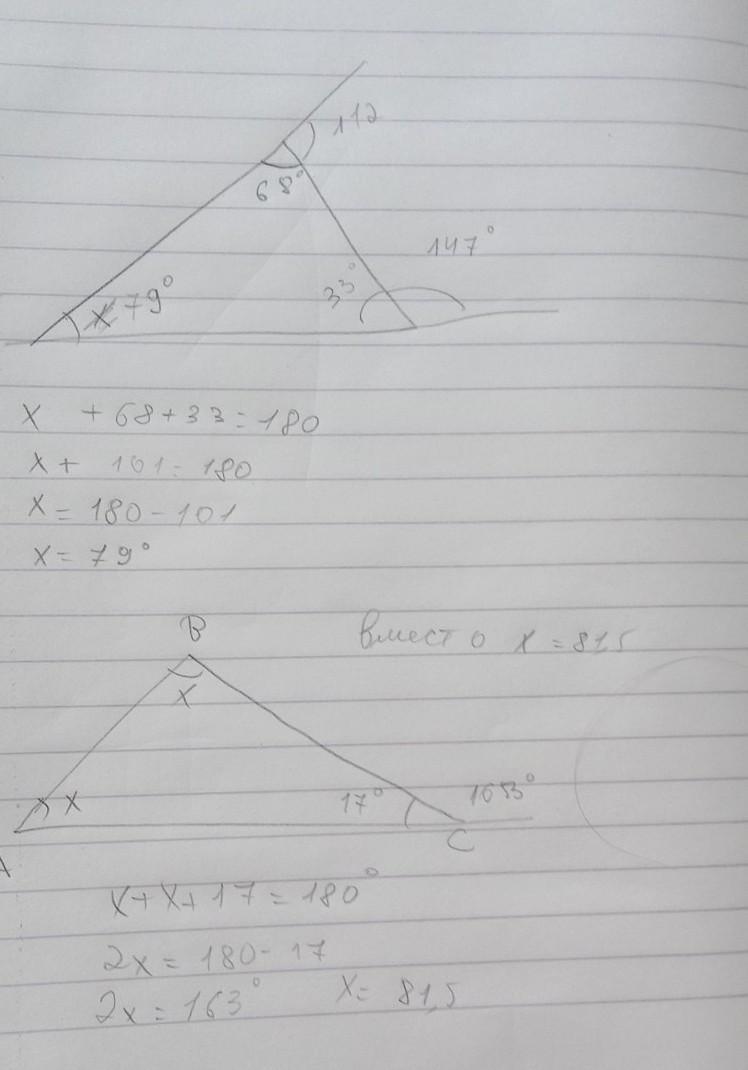 112
68°
147°
33°
x 79°
x + 68 + 33 = 180
x + 101 = 180
x = 180 - 101
x = 79°
B
вместо x = 81,5
x
x
17°
163°
A
C
x + x + 17 = 180°
2x = 180 - 17
2x = 163°
x = 81,5